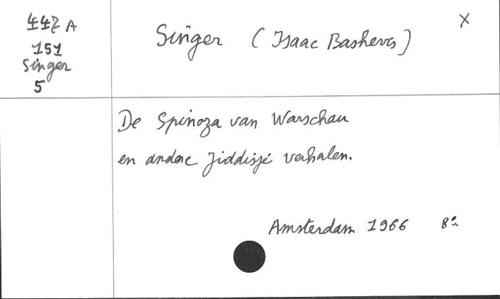 447 A
151
Singer
5
Singer (Isaac Bashevis)
X
De Spinoza van Warschau
en andere Jiddisje verhalen.
Amsterdam 1966 8°